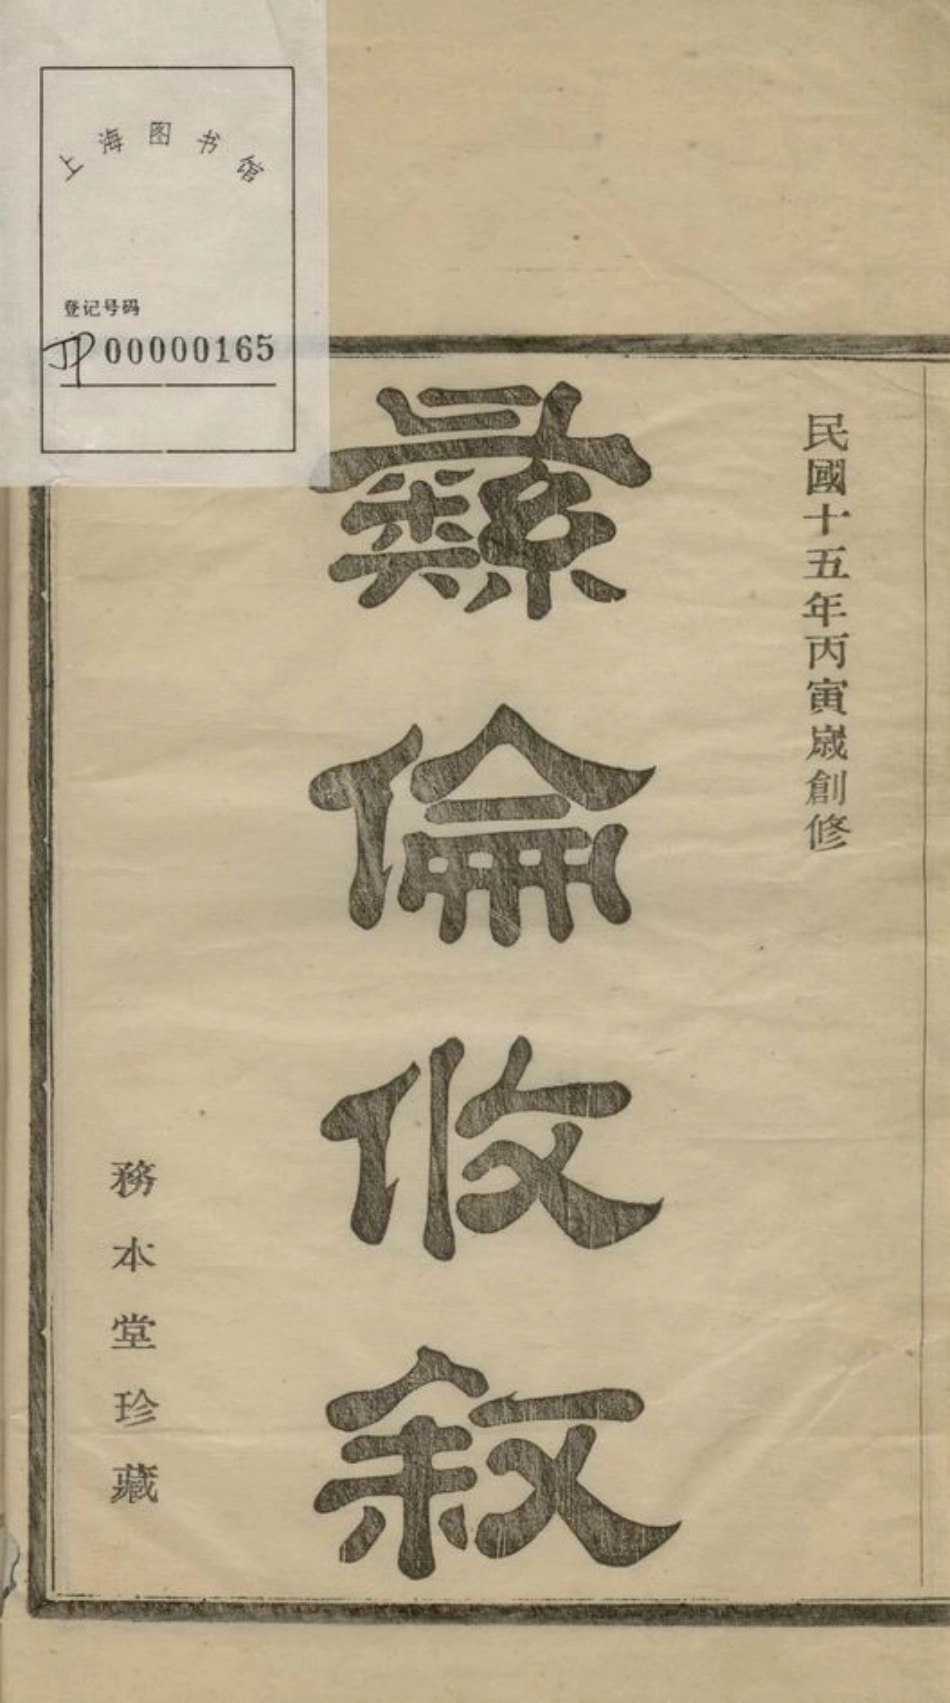 上海图书馆
登记号码
JP 00000165
民國十五年丙寅歲創修
彝倫攸敘
務本堂珍藏